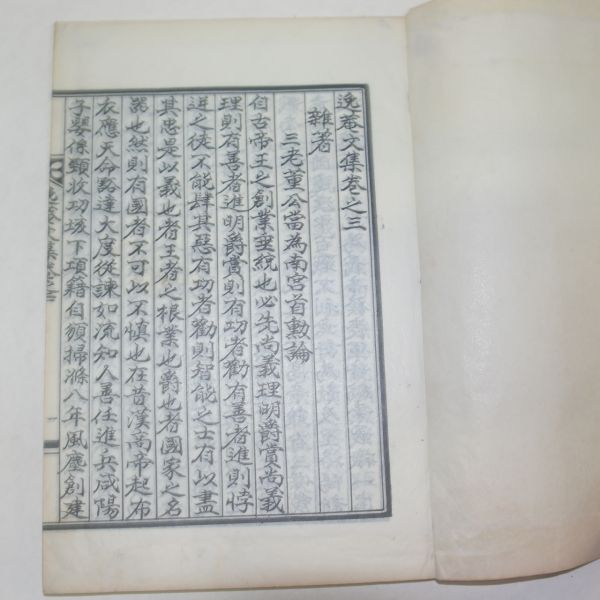 逸菴文集卷之三
雜著
三老董公當為南宮首勳論
自古帝王之創業垂統也必先尚義理明爵賞尚義
理則有善者進明爵賞則有功者勸有善者進則悖
逆之徒不能肆其惡有功者勸則智能之士有以盡
其忠是以義也者王者之根業也爵也者國家之名
器也然則有國者不可以不慎也在昔漢高帝起布
衣應天命豁達大度從諫如流知人善任進兵咸陽
子嬰係頸收功垓下項籍自頒掃滌八年風塵創建